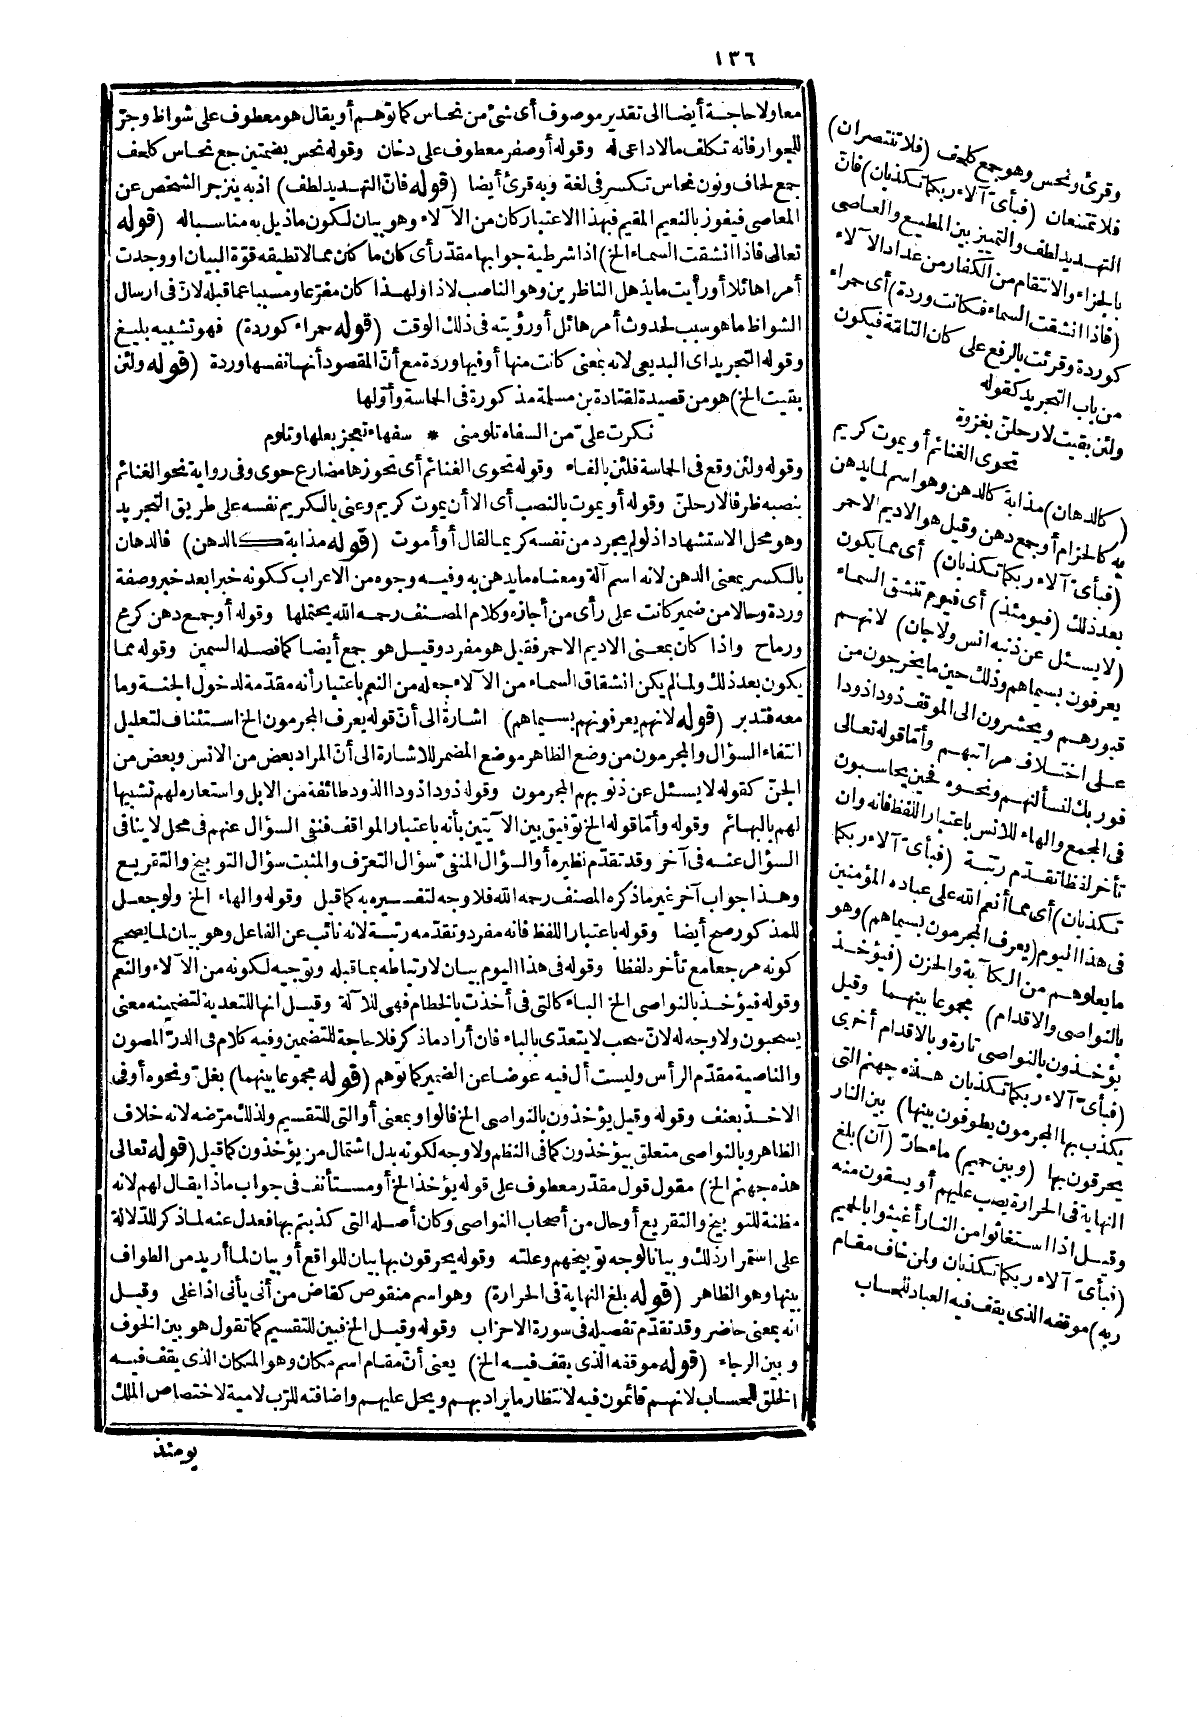 ١٣٦
معا ولا حاجة أيضا الى تقدير موصوف أى شئ من نحاس كما توهم أو يقال هو معطوف على شواظ وجرّ
للجوار فانه تكلف مالا داعى له وقوله أو صفر معطوف على دخان وقوله نحس بضمتين جع نحاس كلحف
جمع لحاف ونون نحاس تكسر فى لغة وبه قرئ أيضا (قوله فانّ التهديد لطف) اذ به ينزجر الشخص عن
المعاصى فيفوز بالنعيم المقيم فبهذا الاعتبار كان من الآلاء وهو بيان لكون ما ذيل به مناسبا له (قوله
تعالى فاذا انشقت السماء الخ) اذا شرطية جوابها مقدّر أى كان ما كان مما لا تطيقه قوّة البيان أو وجدت
أمرا هائلا أو رأيت ما يذهل الناظرين وهو الناصب لاذا ولهذا كان مفرّعا ومسببا عما قبله لانّ فى ارسال
الشواظ ما هو سبب لحدوث أمر هائل أو رؤيته فى ذلك الوقت (قوله حمراء كوردة) فهو تشبيه بليغ
وقوله التجريد اى البديعى لانه بمعنى كانت منها أو فيها وردة مع أنّ المقصود أنها نفسها وردة (قوله ولئن
بقيت الخ) هو من قصيدة لقتادة بن مسلمة مذكورة فى الحماسة وأوّلها
نكرت علىّ من السفاه تلومنى * سفهاء تعجز بعلها وتلوم
وقوله ولئن وقع فى الحماسة فلئن بالفاء وقوله تحوى الغنائم أى تحوزها مضارع حوى وفى رواية نحو الغنائم
بنصبه ظرفا لارحلنّ وقوله أو يموت بالنصب أى الا أن يموت كريم وعنى بالكريم نفسه على طريق التجريد
وهو محل الاستشهاد اذ لو لم يجرد من نفسه كريما لقال أو أموت (قوله مذابة كالدهن) فالدهان
بالكسر بمعنى الدهن لانه اسم آلة ومعناه ما يدهن به وفيه وجوه من الاعراب ككونه خبرا بعد خبر وصفة
وردة وحالا من ضمير كانت على رأى من أجازه وكلام المصنف رحمه الله يحتملها وقوله أو جمع دهن كرمح
ورماح واذا كان بمعنى الاديم الاحمر فقيل هو مفرد وقيل هو جمع أيضا كما فصله السمين وقوله مما
يكون بعد ذلك ولما لم يكن انشقاق السماء من الآلاء جعله من النعم باعتبار أنه مقدّمة لدخول الجنة وما
معه فتدبر (قوله لانهم يعرفونهم بسيماهم) اشارة الى أنّ قوله يعرف المجرمون الخ استئناف لتعليل
انتفاء السؤال والمجرمون من وضع الظاهر موضع المضمر للاشارة الى أنّ المراد بعض من الانس وبعض من
الجنّ كقوله لا يسئل عن ذنوبهم المجرمون وقوله ذودا ذودا الذود طائفة من الابل واستعاره لهم تشبيها
لهم بالبهائم وقوله وأمّا قوله الخ توفيق بين الآيتين بأنه باعتبار المواقف فنفى السؤال عنهم فى محل لا ينافى
السؤال عنه فى آخر وقد تقدّم نظيره أو السؤال المنفىّ سؤال التعرّف والمثبت سؤال التوبيخ والتقريع
وهذا جواب آخر غير ما ذكره المصنف رحمه الله فلا وجه لتفسيره به كما قيل وقوله والهاء الخ ولو جعل
للمذكور صح أيضا وقوله باعتبار اللفظ فانه مفرد وتقدّمه رتبة لانه نائب عن الفاعل وهو بيان لما يصحح
كونه مرجعا مع تأخره لفظا وقوله فى هذا اليوم بيان لارتباطه بما قبله وتوجيه لكونه من الآلاء والنعم
وقوله فيؤخذ بالنواصى الخ الباء كالتى فى أخذت بالخطام فهى للآلة وقيل انها للتعدية لتضمينه معنى
يسحبون ولا وجه له لانّ سحب لا يتعدّى بالباء فان أراد ما ذكر فلا حاجة للتضمين وفيه كلام فى الدرّ المصون
والناصية مقدّم الرأس وليست أل فيه عوضا عن الضمير كما توهم (قوله مجموعا بينهما) بغلّ ونحوه أو فى
الاخذ بعنف وقوله وقيل يؤخذون بالنواصى الخ فالواو بمعنى أو التى للتقسيم ولذلك مرّضه لانه خلاف
الظاهر وبالنواصى متعلق بيؤخذون كما فى النظم ولا وجه لكونه بدل اشتمال من يؤخذون كما قيل (قوله تعالى
هذه جهنم الخ) مقول قول مقدّر معطوف على قوله يؤخذ الخ أو مستأنف فى جواب ماذا يقال لهم لانه
مظنة للتوبيخ والتقريع أو حال من أصحاب النواصى وكان أصله التى كذبتم بها فعدل عنه لما ذكر للدّلالة
على استمرار ذلك وبيانا لوجه توبيخهم وعلته وقوله يحرقون بها بيان للواقع أو بيان لما أريد من الطواف
بينها وهو الظاهر (قوله بلغ النهاية فى الحرارة) وهو اسم منقوص كقاض من أنى يأنى اذا غلى وقيل
انه بمعنى حاضر وقد تقدّم تفصيله فى سورة الاحزاب وقوله وقيل الخ فبين للتقسيم كما تقول هو بين الخوف
وبين الرجاء (قوله موقفه الذى يقف فيه الخ) يعنى أنّ مقام اسم مكان وهو المكان الذى يقف فيه
الخلق للحساب لانهم قائمون فيه لانتظار ما يراد بهم ويحل عليهم واضافته للرّب لامية لاختصاص الملك
يومئذ
وقرئ ونحس وهو جمع كلحف (فلا تنتصران)
فلا تمتنعان (فبأىّ آلاء ربكما تكذبان) فانّ
التهديد لطف والتمييز بين المطيع والعاصى
بالجزاء والانتقام من الكفار من عداد الآلاء
(فاذا انشقت السماء فكانت وردة) أى حمراء
كوردة وقرئت بالرفع على كان التامّة فيكون
من باب التجريد كقوله
ولئن بقيت لارحلنّ بغزوة
تحوى الغنائم أو يموت كريم
(كالدهان) مذابة كالدهن وهو اسم لما يدهن
به كالحزام أو جمع دهن وقيل هو الاديم الاحمر
(فبأىّ آلاء ربكما تكذبان) أى مما يكون
بعد ذلك (فيومئذ) أى فيوم تنشق السماء
(لا يسئل عن ذنبه انس ولا جان) لانهم
يعرفون بسيماهم وذلك حين ما يخرجون من
قبورهم ويحشرون الى الموقف ذودا ذودا
على اختلاف مراتبهم وأمّا قوله تعالى
فوربك لنسألنهم ونحوه فحين يحاسبون
فى المجمع والهاء للانس باعتبار اللفظ فانه وان
تأخر لفظا تقدّم رتبة (فبأىّ آلاء ربكما
تكذبان) أى مما أنعم الله على عباده المؤمنين
فى هذا اليوم (يعرف المجرمون بسيماهم) وهو
ما يعلوهم من الكآبة والحزن (فيؤخذ
بالنواصى والاقدام) مجموعا بينهما وقيل
يؤخذون بالنواصى تارة وبالاقدام أخرى
(فبأىّ آلاء ربكما تكذبان هذه جهنم التى
يكذب بها المجرمون يطوفون بينها) بين النار
يحرقون بها (وبين حميم) ماء حارّ (آن) بلغ
النهاية فى الحرارة يصب عليهم أو يسقون منه
وقيل اذا استغاثوا من النار أغيثوا بالحميم
(فبأىّ آلاء ربكما تكذبان ولمن خاف مقام
ربه) موقفه الذى يقف فيه العباد للحساب